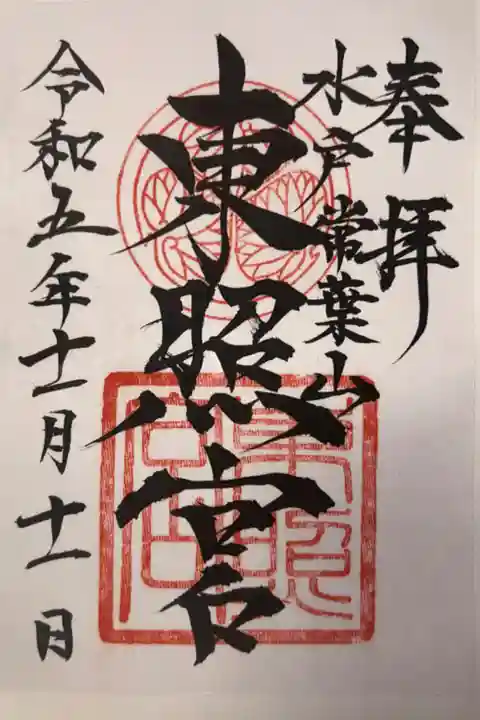 奉拝
水戸常葉山
東照宮
令和五年十一月十一日
東照宮